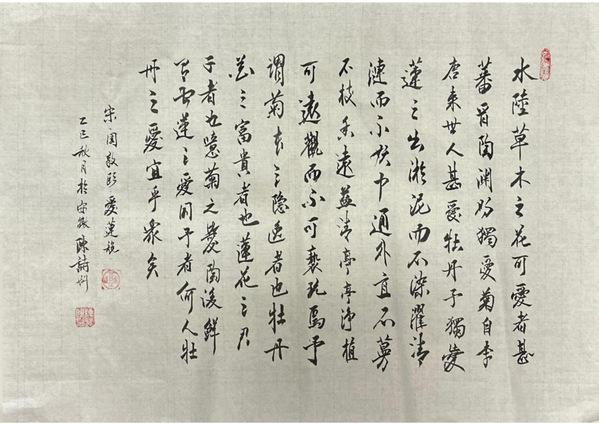 水陸草木之花可愛者甚
蕃晋陶渊明獨愛菊自李
唐来世人甚愛牡丹予獨愛
蓮之出淤泥而不染濯清
漣而不妖中通外直不蔓
不枝香遠益清亭亭净植
可遠觀而不可褻玩焉予
謂菊花之隐逸者也牡丹
花之富貴者也蓮花之君
子者也噫菊之愛陶後鮮
有闻蓮之愛同予者何人牡
丹之愛宜乎衆矣
宋周敦颐愛蓮说
乙巳秋月於